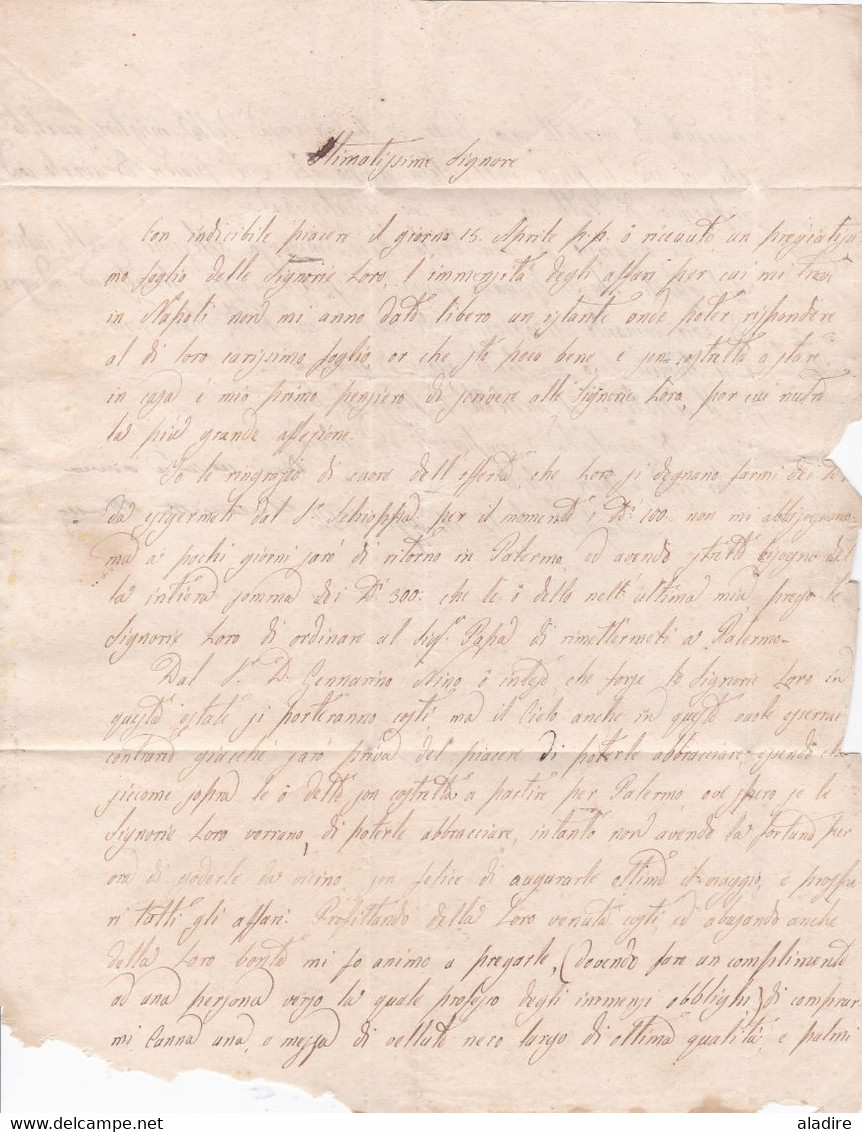 Stimatissime Signore
Con indicibile piacere il giorno 15. Aprile p.p. ò ricevuto un pregiatissi
mo foglio delle Signorie Loro, l'immensità degli affari per cui mi trovo
in Napoli non mi anno dato libero un istante onde poter rispondere
al di loro carissimo foglio, or che sto poco bene e son costretta a stare
in casa è mio primo pensiero di scrivere alle Signorie Loro, per cui nutro
la più grande affezione.
Io le ringrazio di cuore dell'offerta che Loro si degnano farmi dei
da esigermeli dal Sr. Schioppa per il momento i Dti. 100. non mi abbisognano
ma a pochi giorni sarò di ritorno in Palermo, ed avendo stretto bisogno del
la intiera somma dei Dti. 300. che le ò detto nell'ultima mia prego le
Signorie Loro di ordinare al Sigr. Papa di rimettermeli a Palermo-
Dal Sr. D. Gennarino Nino ò inteso, che forse le Signorie Loro in
questa estate si porteranno costì ma il Cielo anche in questo vuole essermi
contrario giacchè sarò priva del piacere di poterle abbracciare essendo che
siccome sopra le ò detto son costretta a partire per Palermo, ove spero se le
Signorie Loro verrano, di poterle abbracciare, intanto non avendo la fortuna per
ora di goderle da vicino, son felice di augurarle ottimo il viaggio, e prosperi
ri tutti gli affari. Profittando della Loro venuta costì, ed abusando anche
della Loro bontà mi fo animo a pregarle, (dovendo fare un complimento
ad una persona verso la quale professo degli immensi obblighi) di comprar
mi Canna una, e mezza di velluto nero largo di ottima qualità, e palmi
aladire